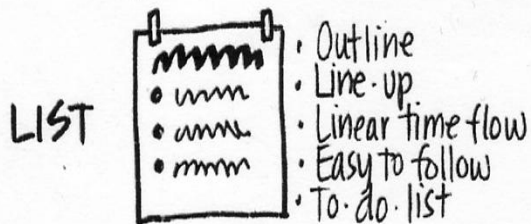 LIST
· Outline
· Line·up
· Linear time flow
· Easy to follow
· To·do·list